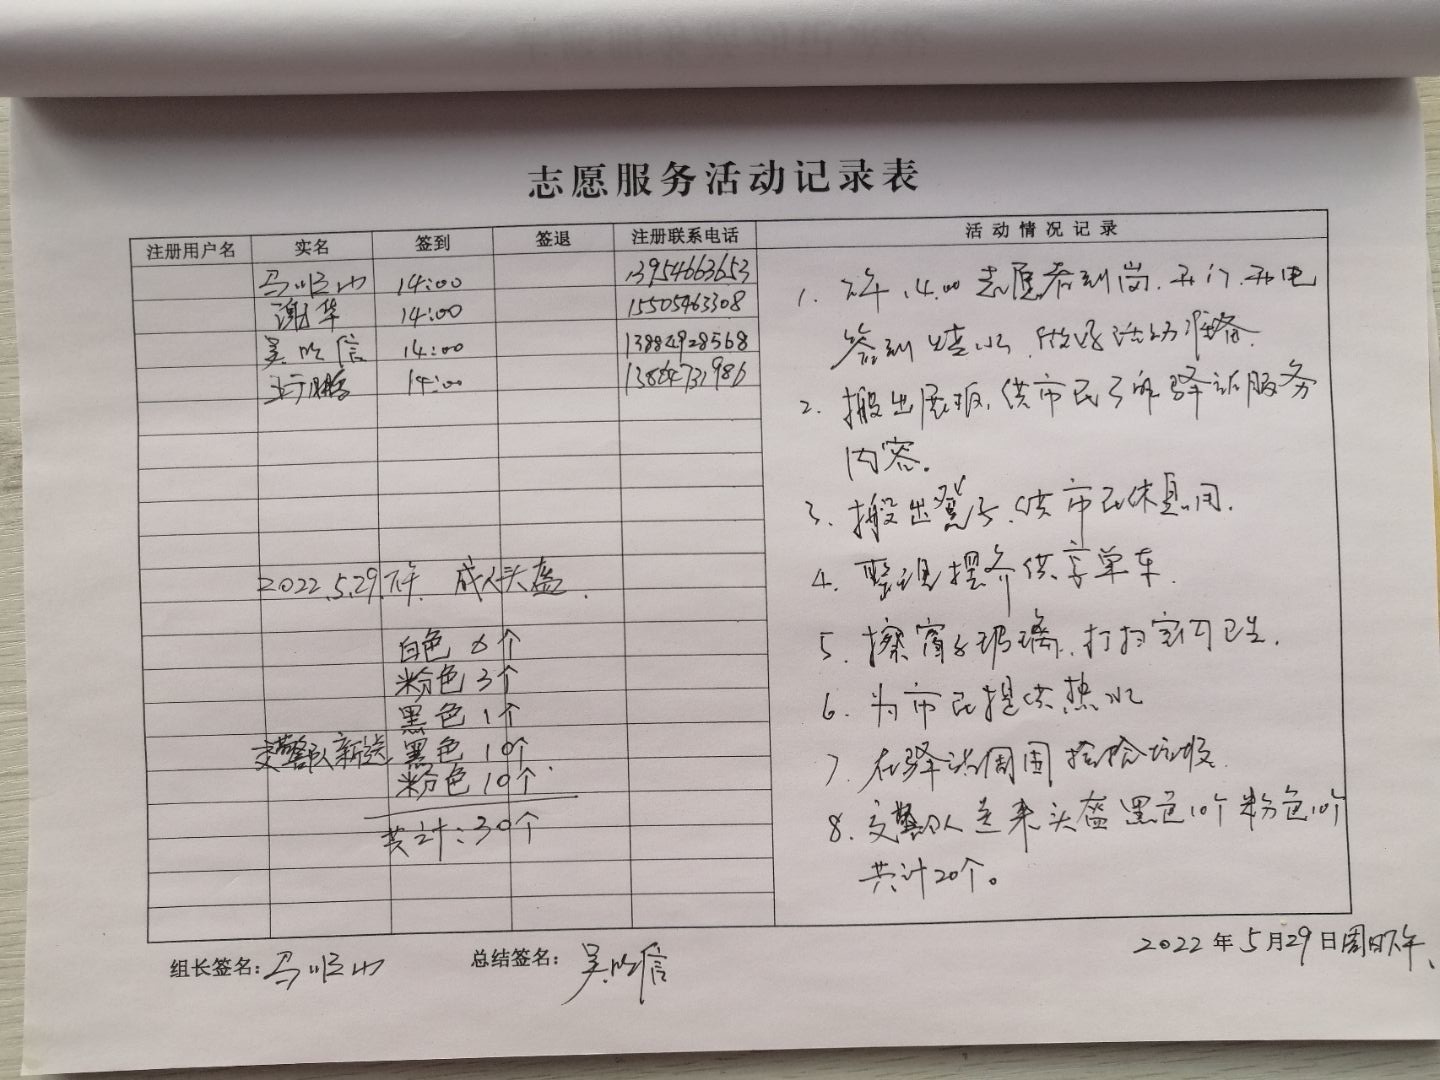 志愿服务活动记录表
注册用户名 实名 签到 签退 注册联系电话 活动情况记录
马顺山 14:00 13954663653
谢华 14:00 15505463308
吴 信 14:00 13884928568
于鹏 14:00 13864731986
2022.5.29.下午. 成人头盔.
白色 6个
粉色 3个
黑色 1个
交警队新送. 黑色 10个
粉色 10个.
共计:30个
1. 下午.14.00 志愿者到岗.开门.开电
签到 烧水.做好活动准备.
2. 搬出展板,供市民了解驿站服务
内容.
3. 搬出凳子.供市民休息用.
4. 整理摆齐供享单车.
5. 擦窗子玻璃.打扫室内卫生.
6. 为市民提供热水
7. 在驿站周围捡捡垃圾.
8. 交警队送来头盔黑色10个粉色10个
共计20个。
组长签名:马顺山 总结签名: 吴 信 2022年5月29日周日下午.